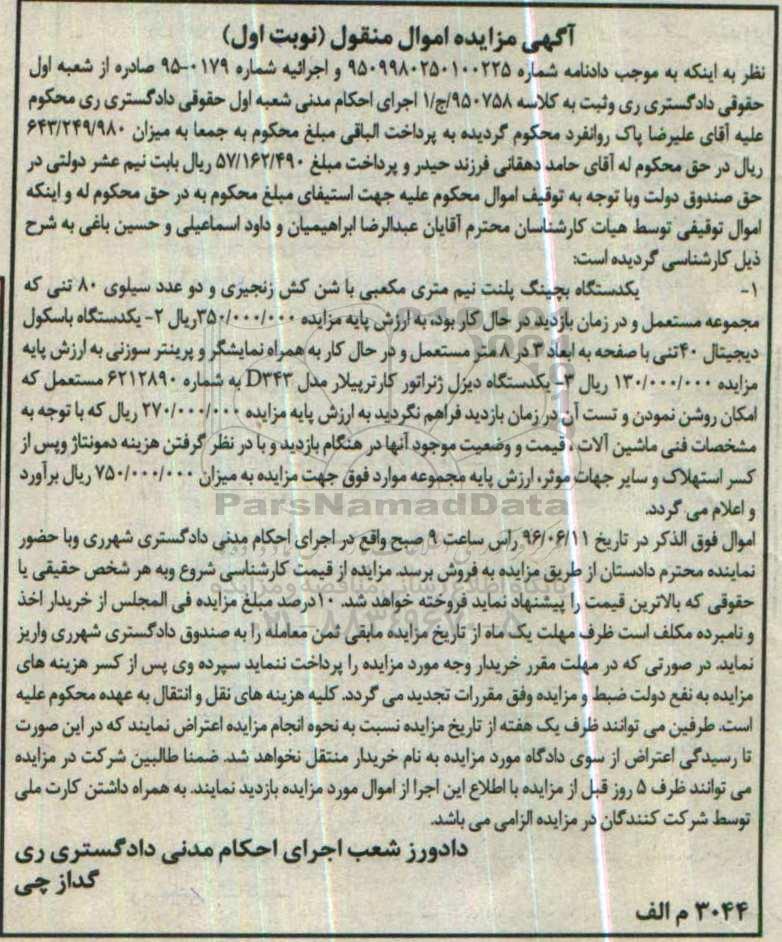 آگهی مزایده اموال منقول (نوبت اول)
نظر به اینکه به موجب دادنامه شماره ۹۵۰۹۹۸۰۲۵۰۱۰۰۲۲۵ و اجرائیه شماره ۰۱۷۹-۹۵ صادره از شعبه اول
حقوقی دادگستری ری وثبت به کلاسه ۹۵۰۷۵۸/ج/۱ اجرای احکام مدنی شعبه اول حقوقی دادگستری ری محکوم
علیه آقای علیرضا پاک روانفرد محکوم گردیده به پرداخت الباقی مبلغ محکوم به جمعا به میزان ۶۴۳/۲۴۹/۹۸۰
ریال در حق محکوم له آقای حامد دهقانی فرزند حیدر و پرداخت مبلغ ۵۷/۱۶۲/۴۹۰ ریال بابت نیم عشر دولتی در
حق صندوق دولت وبا توجه به توقیف اموال محکوم علیه جهت استیفای مبلغ محکوم به در حق محکوم له و اینکه
اموال توقیفی توسط هیات کارشناسان محترم آقایان عبدالرضا ابراهیمیان و داود اسماعیلی و حسین باغی به شرح
ذیل کارشناسی گردیده است:
۱- یکدستگاه بچینگ پلنت نیم متری مکعبی با شن کش زنجیری و دو عدد سیلوی ۸۰ تنی که
مجموعه مستعمل و در زمان بازدید در حال کار بود، به ارزش پایه مزایده ۳۵۰/۰۰۰/۰۰۰ریال ۲- یکدستگاه باسکول
دیجیتال ۴۰تنی با صفحه به ابعاد ۳ در ۸ متر مستعمل و در حال کار به همراه نمایشگر و پرینتر سوزنی به ارزش پایه
مزایده ۱۳۰/۰۰۰/۰۰۰ ریال ۳- یکدستگاه دیزل ژنراتور کارترپیلار مدل D۳۴۳ به شماره ۶۲۱۲۸۹۰ مستعمل که
امکان روشن نمودن و تست آن در زمان بازدید فراهم نگردید به ارزش پایه مزایده ۲۷۰/۰۰۰/۰۰۰ ریال که با توجه به
مشخصات فنی ماشین آلات ، قیمت و وضعیت موجود آنها در هنگام بازدید و با در نظر گرفتن هزینه دمونتاژ وپس از
کسر استهلاک و سایر جهات موثر، ارزش پایه مجموعه موارد فوق جهت مزایده به میزان ۷۵۰/۰۰۰/۰۰۰ ریال برآورد
و اعلام می گردد.
ParsNamadData
اموال فوق الذکر در تاریخ ۹۶/۰۶/۱۱ راس ساعت ۹ صبح واقع در اجرای احکام مدنی دادگستری شهرری وبا حضور
نماینده محترم دادستان از طریق مزایده به فروش برسد. مزایده از قیمت کارشناسی شروع وبه هر شخص حقیقی یا
حقوقی که بالاترین قیمت را پیشنهاد نماید فروخته خواهد شد. ۱۰درصد مبلغ مزایده فی المجلس از خریدار اخذ
و نامبرده مکلف است ظرف مهلت یک ماه از تاریخ مزایده مابقی ثمن معامله را به صندوق دادگستری شهرری واریز
نماید. در صورتی که در مهلت مقرر خریدار وجه مورد مزایده را پرداخت ننماید سپرده وی پس از کسر هزینه های
مزایده به نفع دولت ضبط و مزایده وفق مقررات تجدید می گردد. کلیه هزینه های نقل و انتقال به عهده محکوم علیه
است. طرفین می توانند ظرف یک هفته از تاریخ مزایده نسبت به نحوه انجام مزایده اعتراض نمایند که در این صورت
تا رسیدگی اعتراض از سوی دادگاه مورد مزایده به نام خریدار منتقل نخواهد شد. ضمنا طالبین شرکت در مزایده
می توانند ظرف ۵ روز قبل از مزایده با اطلاع این اجرا از اموال مورد مزایده بازدید نمایند. به همراه داشتن کارت ملی
توسط شرکت کنندگان در مزایده الزامی می باشد.
دادورز شعب اجرای احکام مدنی دادگستری ری
گداز چی
۳۰۴۴ م الف